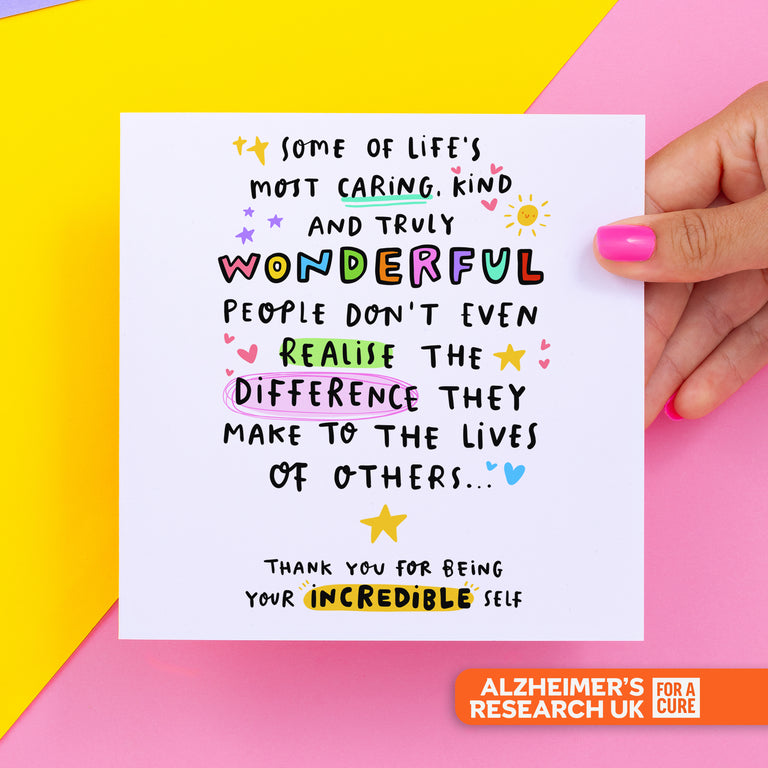 SOME OF LiFE'S
MOST CARiNG, KiND
AND TRULY
WONDERFUL
PEOPLE DON'T EVEN
REALiSE THE
DiFFERENCE THEY
MAKE TO THE LiVES
OF OTHERS...
THANK YOU FOR BEiNG
YOUR iNCREDiBLE SELF
ALZHEIMER'S
RESEARCH UK
FOR A
CURE